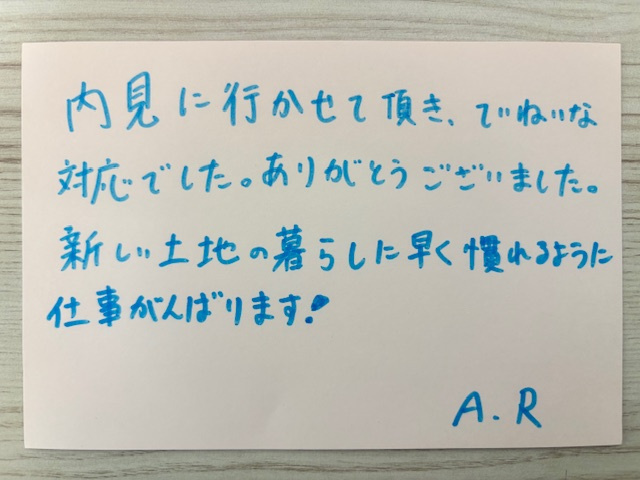 内見に行かせて頂き、ていねいな
対応でした。ありがとうございました。
新しい土地の暮らしに早く慣れるように
仕事がんばります!
A.R